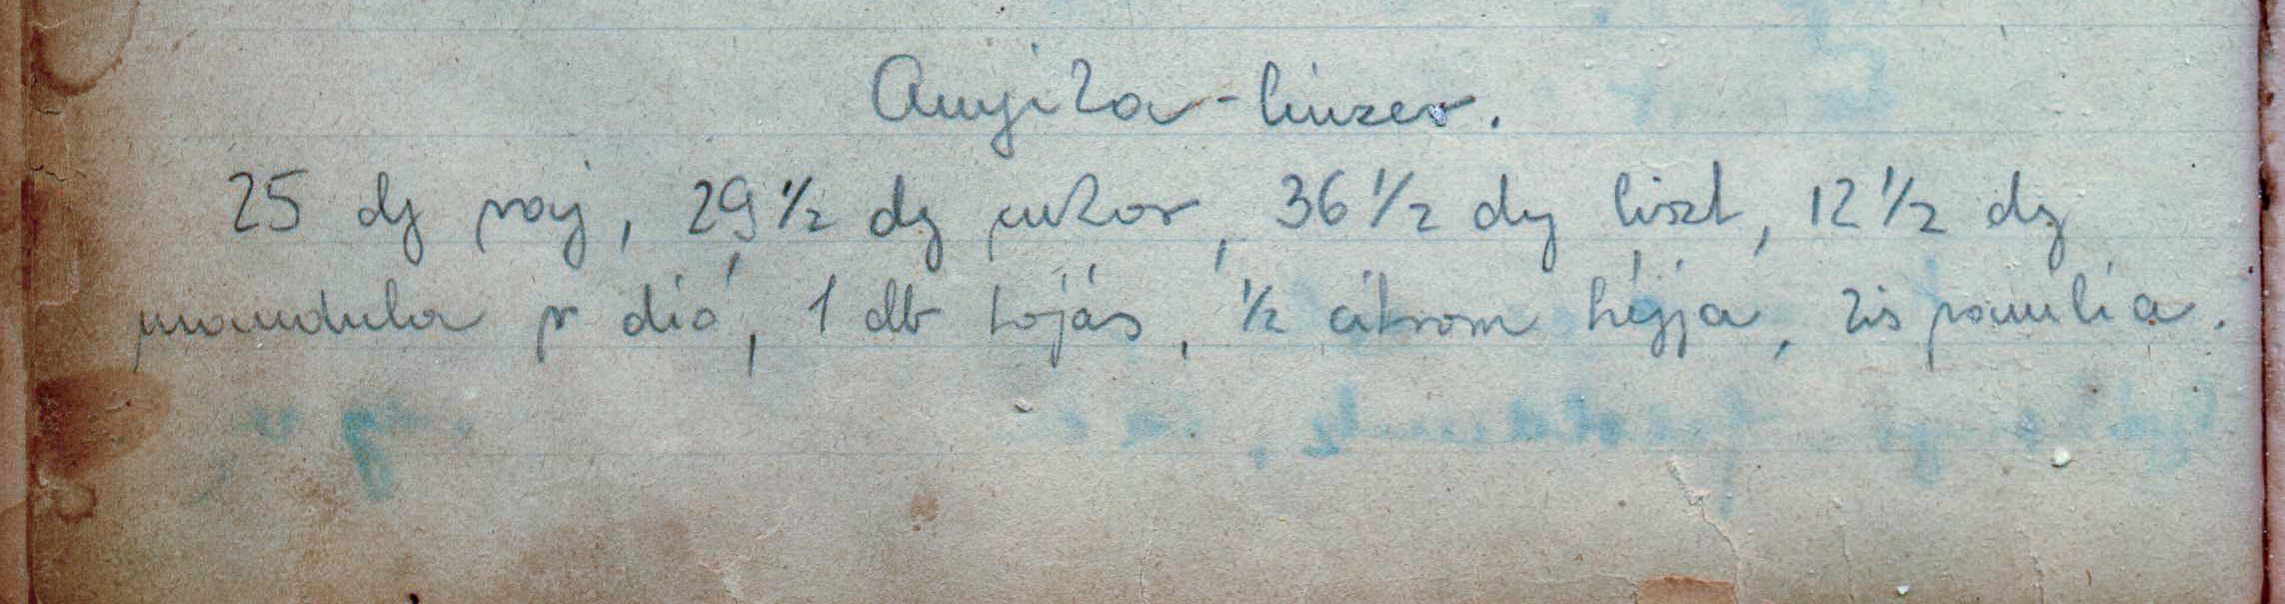 Anyika-linzer.
25 dg vaj, 29 1/2 dg cukor, 36 1/2 dg liszt, 12 1/2 dg
mandula v dió, 1 db tojás, 1/2 citrom héjja, kis vanilia.